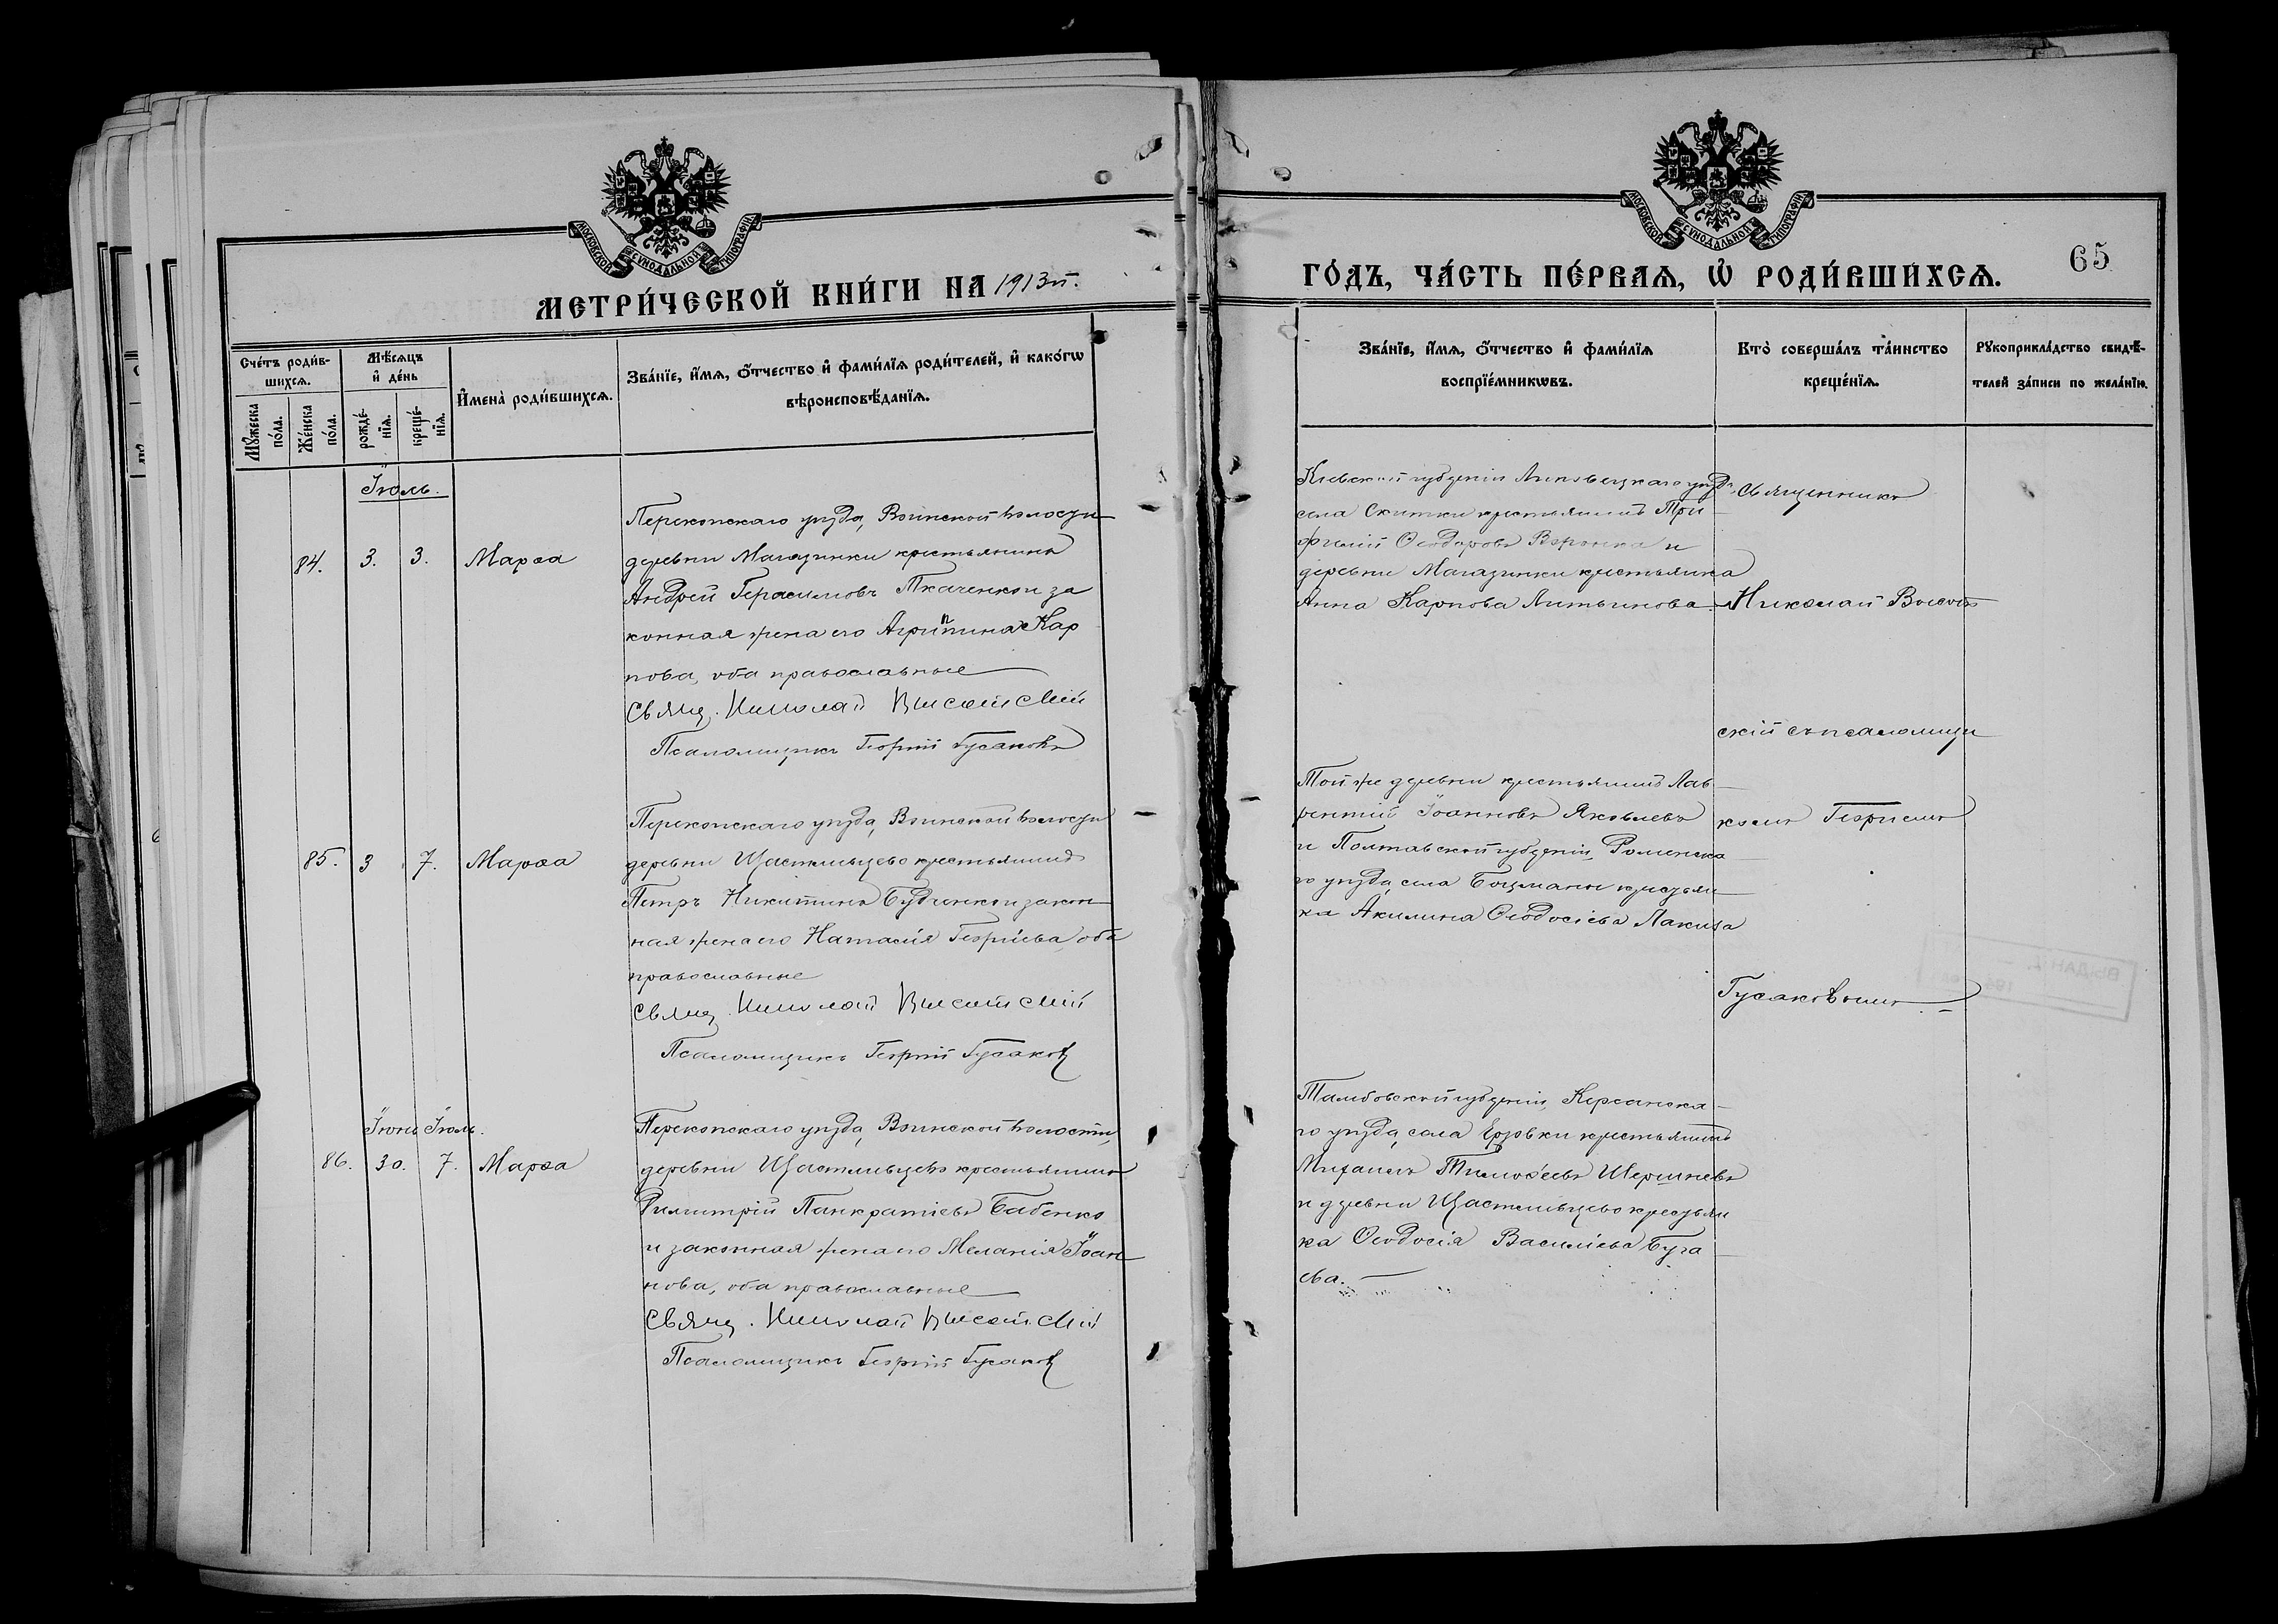 МОСКОВСКОЙ СѴНОДАЛЬНОЙ ТИПОГРАФІИ
МЕТРИ́ЧЕСКОЙ КНИ́ГИ НА 1913 г.
Сче́тъ роди́в-
шихсѧ.
Мѣ́сѧцъ
и҆ де́нь
Мꙋ́жеска
по́ла.
Же́нска
по́ла.
рожде́-
нїѧ.
креще́-
нїѧ.
И҆мена̀ роди́вшихсѧ.
Зва́нїе, и҆́мѧ, ѻ҆́тчество и҆ фами́лїѧ роди́телей, и҆ како́гѡ
вѣроисповѣ́данїѧ.
Іюль.
84. 3. 3. Марѳа
Перекопскаго уѣзда, Воинской волости
деревни Магазинки крестьянинъ
Андрей Герасимовъ Ткаченко и за
конная жена его Агрипина Кар
пова, оба православные
Свящ. Николай Высотскій
Псаломщикъ Георгій Гусаковъ
85. 3 7. Марѳа
Перекопскаго уѣзда, Воинской волости
деревни Щастливцево крестьянинъ
Петръ Никитинъ и закон
ная жена его Наталія Георгіева, оба
православные
Свящ. Николай Высотскій
Псаломщикъ Георгій Гусаковъ
Іюнь Іюль.
86. 30. 7. Марѳа
Перекопскаго уѣзда, Воинской волости,
деревни Щастливцево крестьянинъ
Димитрій Панкратіевъ Бабенко
и законная жена его Меланія Іоан
нова, оба православные
Свящ. Николай Высотскій
Псаломщикъ Георгій Гусаковъ
МОСКОВСКОЙ СѴНОДАЛЬНОЙ ТИПОГРАФІИ
65
ГО́ДЪ, ЧА́СТЬ ПЕ́РВАѦ, Ѽ РОДИ́ВШИХСѦ.
Зва́нїе, и҆́мѧ, ѻ҆́тчество и҆ фами́лїѧ
воспрїе́мникѡвъ.
Кто̀ соверша́лъ та́инство
креще́нїѧ.
Рꙋкоприкла́дство свидѣ́-
телей за́писи по жела́нїю.
Кіевской губерніи Липовецкаго уѣзда
села Скитки крестьянинъ Три
филій Ѳеодоровъ Воронка и
деревни Магазинки крестьянка
Анна Карпова Литвинова
Тойже деревни крестьянинъ Лав
рентій Іоанновъ Яковлевъ
и Полтавской губерніи, Роменска
го уѣзда, села крестьян
ка Акилина Ѳеодосіева Лакиза
Тамбовской губерніи, Кирсанска
го уѣзда, села крестьянинъ
Михаилъ Тимоѳеевъ Шершневъ
и деревни Щастливцево крестьян
ка Ѳеодосія Василіева Буга
ева.
Священникъ
Николай Высот
скій съ псаломщи
комъ Георгіемъ
Гусаковымъ